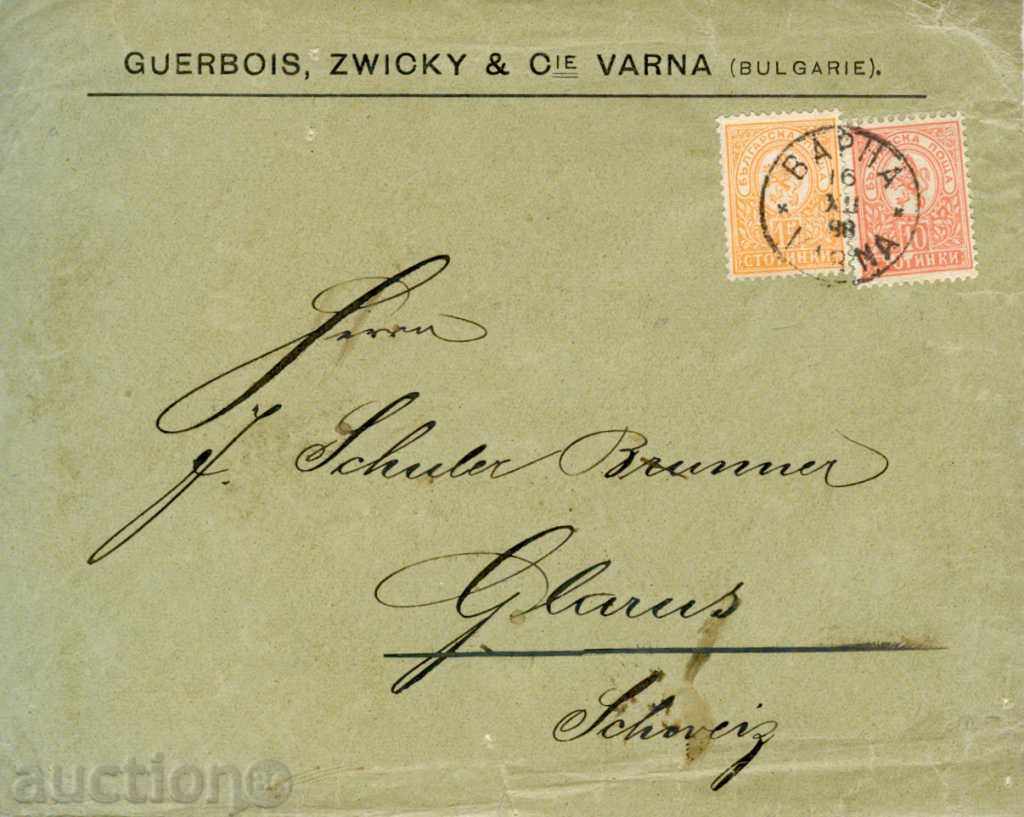 GUERBOIS, ZWICKY & CIE VARNA (BULGARIE).
БЪЛГАРСКА
15
СТОТИНКИ
СКА ПОЩА
10
СТОТИНКИ
ВАРНА
16
XII
98
Herrn
J. Schuler Brunner
Glarus
Schweiz
auction